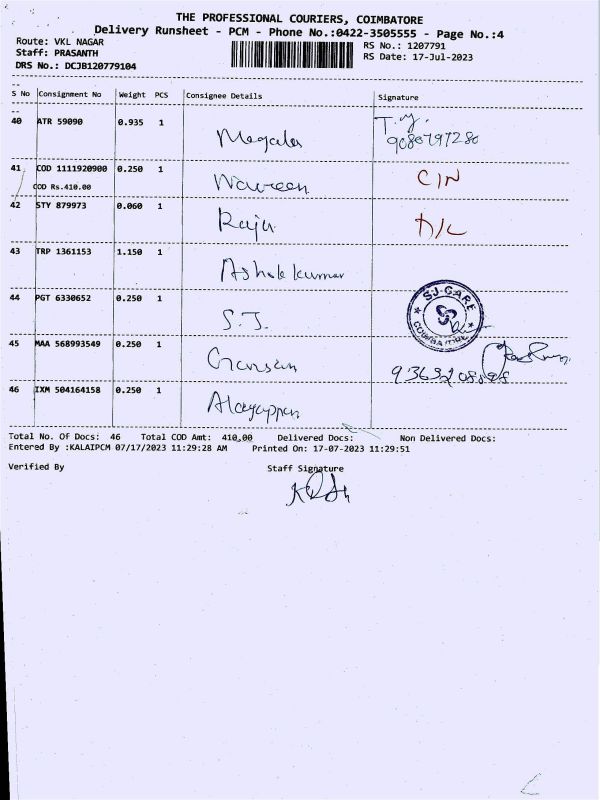 THE PROFESSIONAL COURIERS, COIMBATORE
Delivery Runsheet - PCM - Phone No.:0422-3505555 - Page No.:4
Route: VKL NAGAR
Staff: PRASANTH
DRS No.: DCJB120779104
RS No.: 1207791
RS Date: 17-Jul-2023
S No Consignment No Weight PCS Consignee Details Signature
40 ATR 59090 0.935 1 Megala
41 COD 1111920900 0.250 1 Naveen C/N
COD Rs.410.00
42 STY 879973 0.060 1 Raju D/L
43 TRP 1361153 1.150 1 Ashok kumar
44 PGT 6330652 0.250 1 S.J. SJ-CARE COIMBATORE
45 MAA 568993549 0.250 1
46 IXM 504164158 0.250 1 Alagappan
Total No. Of Docs: 46 Total COD Amt: 410.00 Delivered Docs: Non Delivered Docs:
Entered By :KALAIPCM 07/17/2023 11:29:28 AM Printed On: 17-07-2023 11:29:51
Verified By Staff Signature